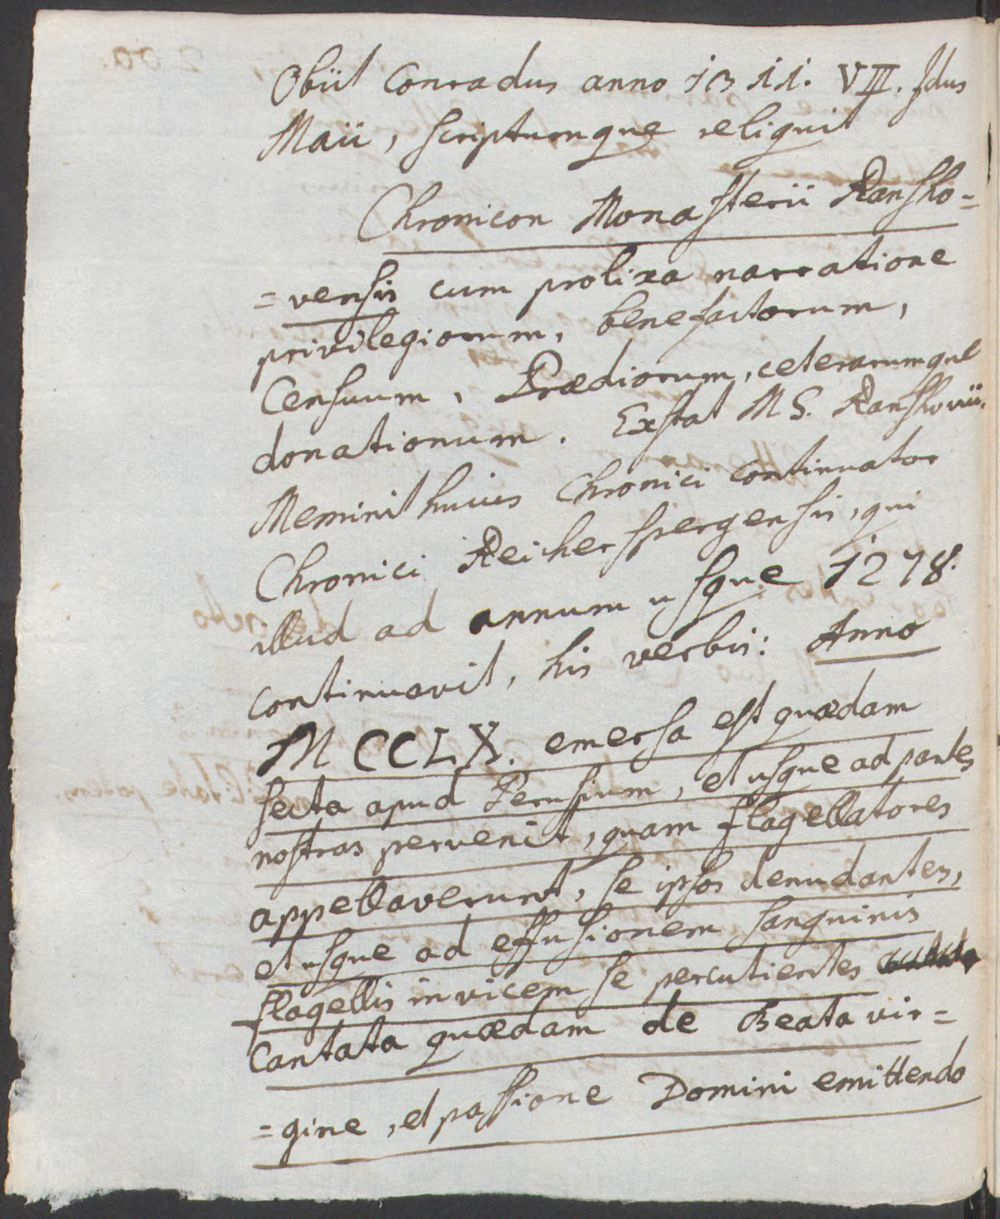 Obiit Conradus anno 1311. VIII. Idus
Maii, scriptumque reliquit
Chronicon Monasterii Ransho=
=vensis cum prolixa narratione
privilegiorum, benefactorum,
Censuum, Prædiorum, ceterarumque
donationum. Exstat MS. Ranshovii.
Meminit huius Chronici continuator
Chronici Reicherspergensis, qui
illud ad annum usque 1278.
continuavit, his verbis: Anno
MCCLX. emersa est quædam
secta apud Perusium, et usque ad partes
nostras pervenit, quam flagellatores
appellaverunt, se ipsos denudantes,
et usque ad effusionem sanguinis
flagellis invicem se percutientes
Cantata quædam de Beata vir=
=gine, et passione Domini emittendo